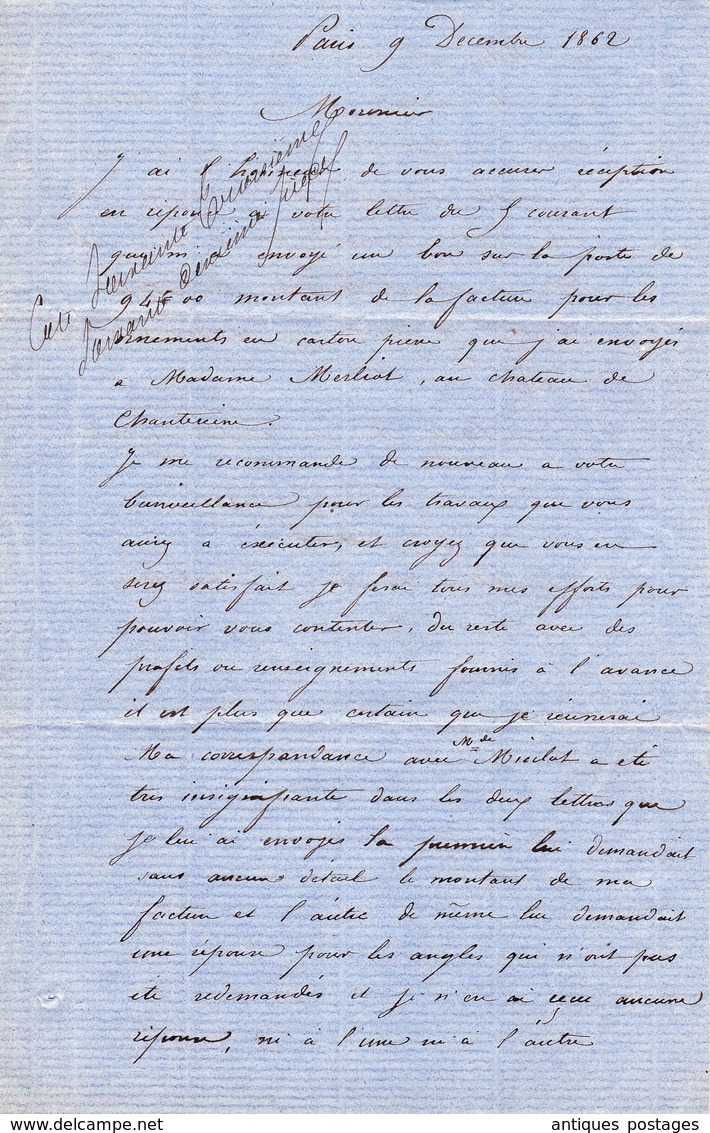 Paris 9 Decembre 1862
Monsieur
J ai l honneur de vous accuser réception
en réponse a votre lettre du 5 courant
que m envoyé un bon sur la poste de
94 f 00 montant de la facture pour les
ornements en carton pierre que j ai envoyés
a Madame Merliot, au chateau de
Chantereine.
Je me recommande de nouveau a votre
bienveillance pour les travaux que vous
aurez a éxécuter, et croyez que vous en
serez satisfait je ferai tous mes efforts pour
pouvoir vous contenter, du reste avec des
profils ou renseignements fournis à l avance
il est plus que certain que je réunirai
Ma correspondance avec Mde Merliot a été
tres insignifiante dans les deux lettres que
je lui ai envoyés la premièr lui demandait
sans aucun détail le montant de ma
facture et l autre de même lui demandait
une réponse pour les angles qui n ont pas
été redemandés et je n en ai reçu aucune
réponse, ni à l une ni à l autre
Cote Soixante Onzième
Soixante onzième pièce
antiques postages
delcampe.net